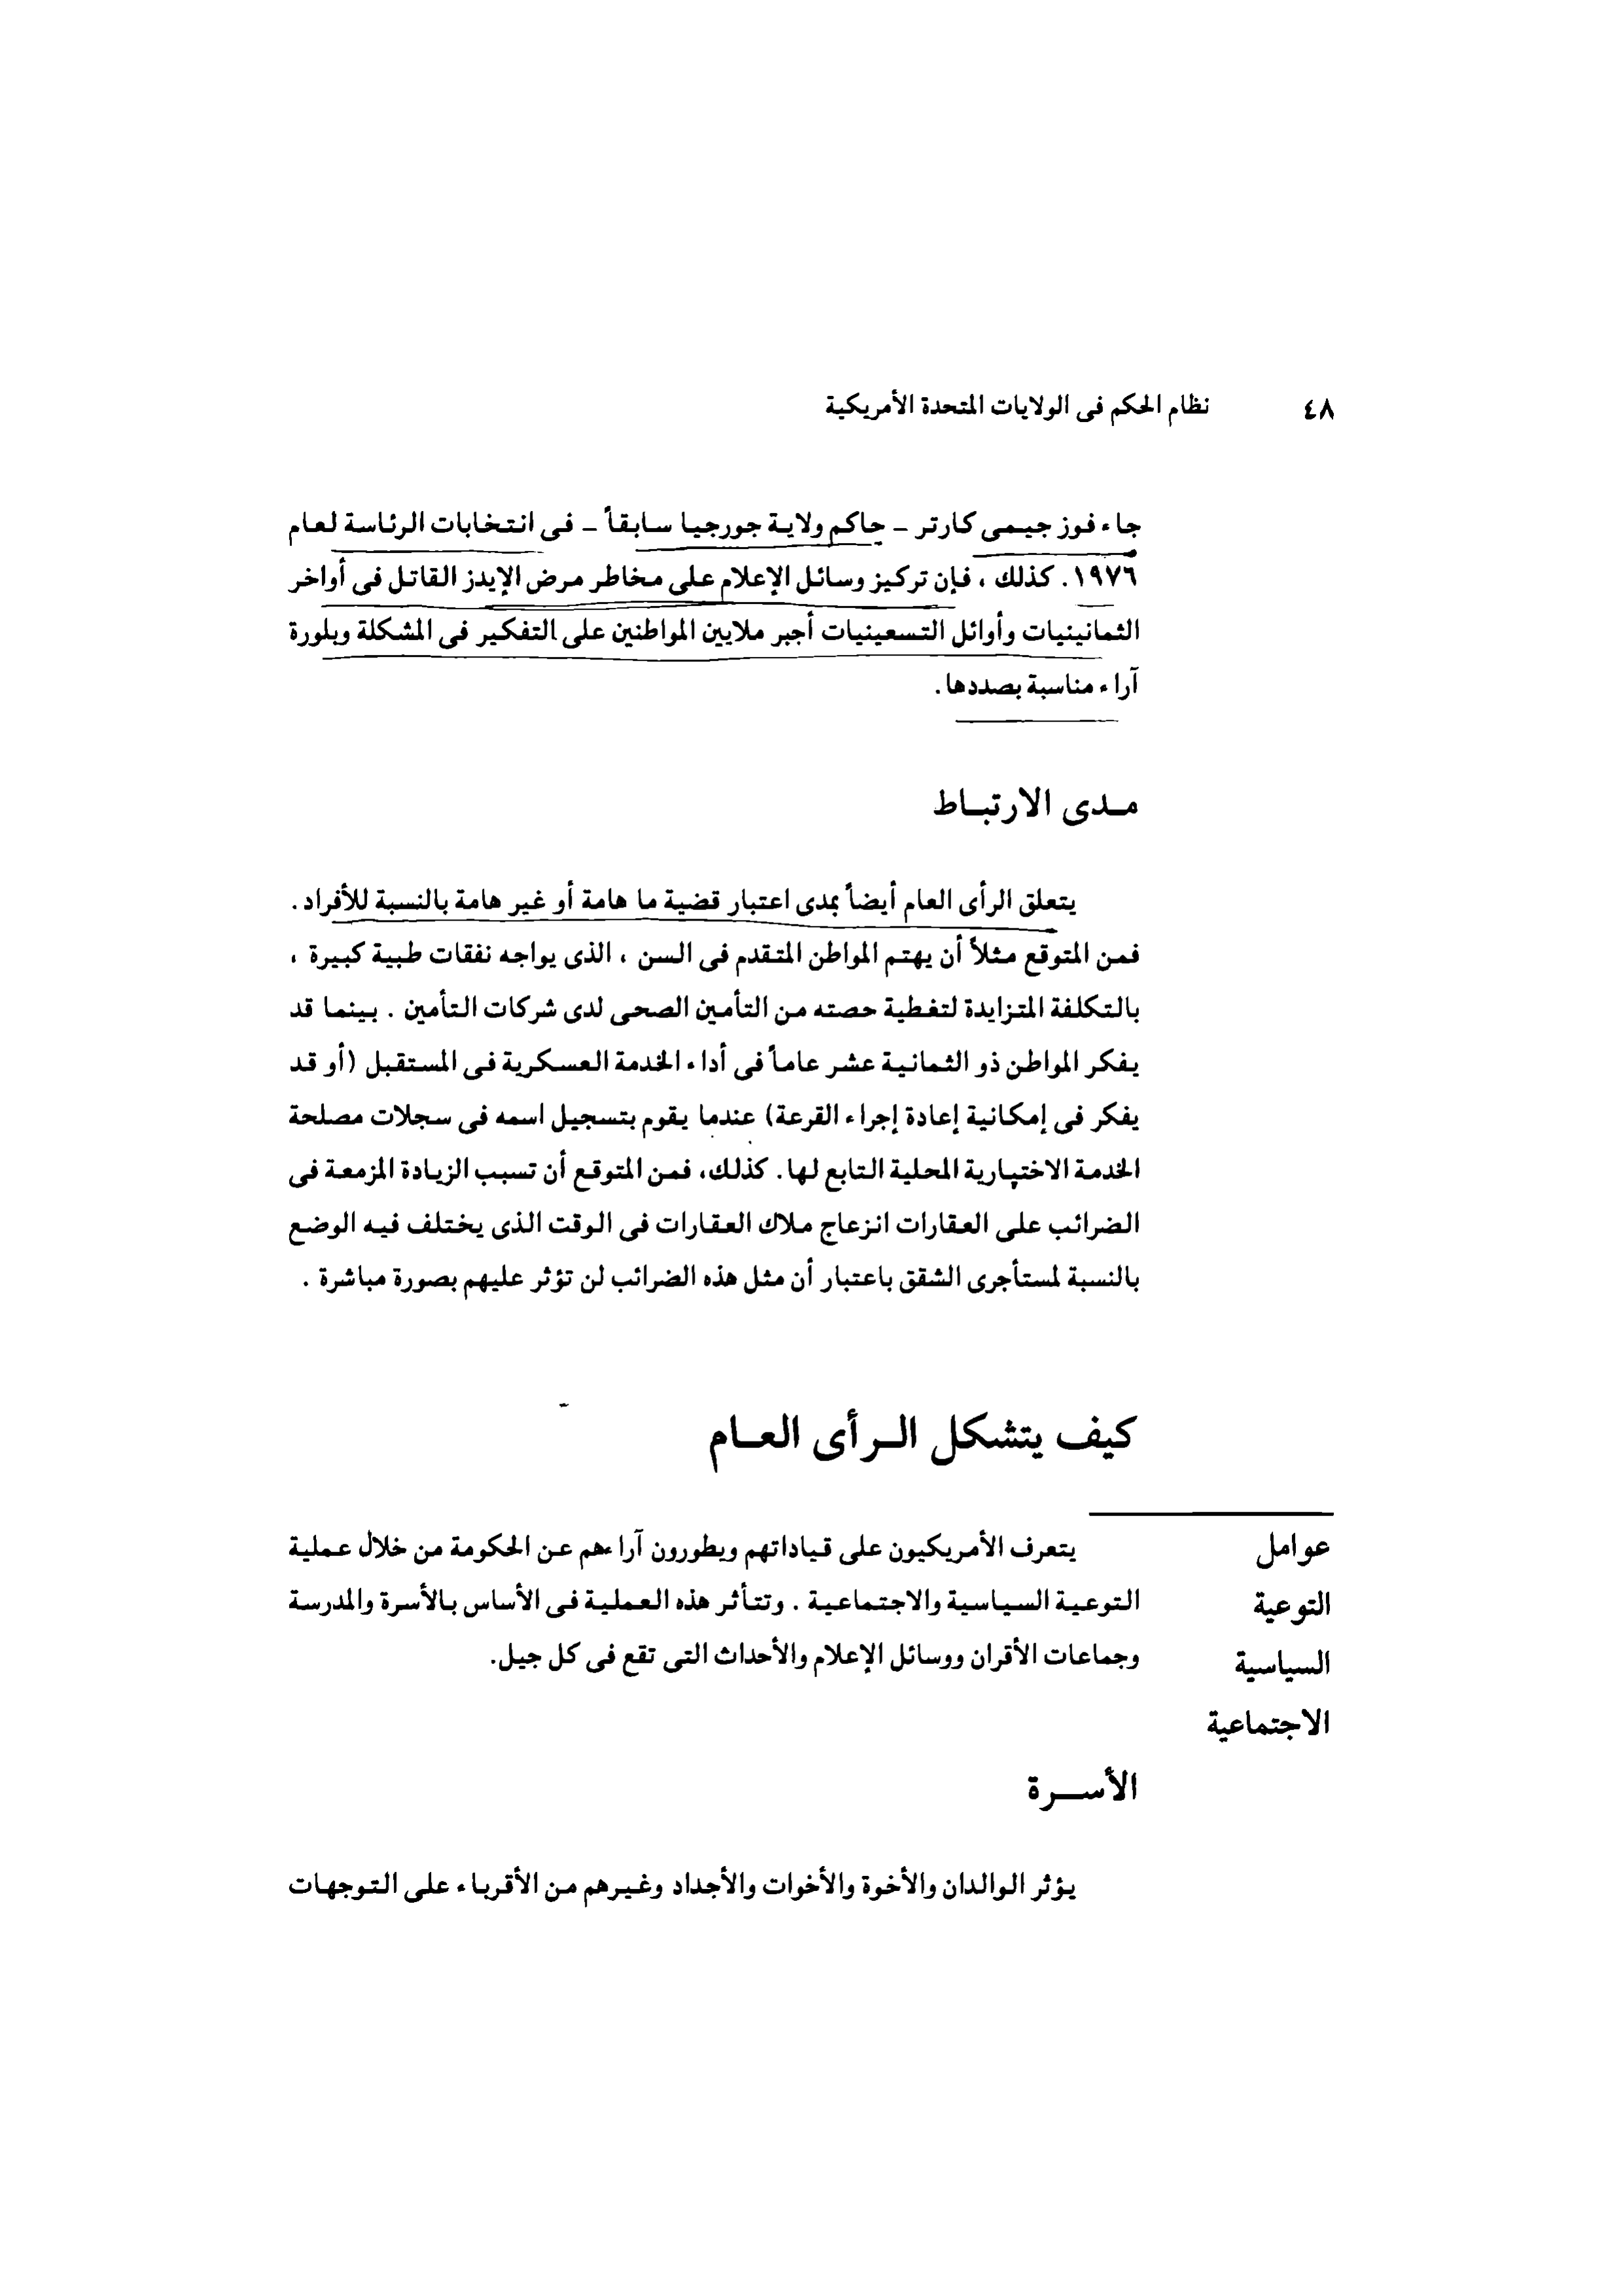 ٤٨ نظام الحكم فى الولايات المتحدة الأمريكية
جاء فوز جيمى كارتر – حاكم ولاية جورجيا سابقاً – فى انتخابات الرئاسة لعام
١٩٧٦. كذلك ، فإن تركيز وسائل الإعلام على مخاطر مرض الإيدز القاتل فى أواخر
الثمانينيات وأوائل التسعينيات أجبر ملايين المواطنين على التفكير فى المشكلة وبلورة
آراء مناسبة بصددها.
مدى الارتباط
يتعلق الرأى العام أيضاً بمدى اعتبار قضية ما هامة أو غير هامة بالنسبة للأفراد .
فمن المتوقع مثلاً أن يهتم المواطن المتقدم فى السن ، الذى يواجه نفقات طبية كبيرة ،
بالتكلفة المتزايدة لتغطية حصته من التأمين الصحى لدى شركات التأمين . بينما قد
يفكر المواطن ذو الثمانية عشر عاماً فى أداء الخدمة العسكرية فى المستقبل (أو قد
يفكر فى إمكانية إعادة إجراء القرعة) عندما يقوم بتسجيل اسمه فى سجلات مصلحة
الخدمة الاختيارية المحلية التابع لها. كذلك، فمن المتوقع أن تسبب الزيادة المزمعة فى
الضرائب على العقارات انزعاج ملاك العقارات فى الوقت الذى يختلف فيه الوضع
بالنسبة لمستأجرى الشقق باعتبار أن مثل هذه الضرائب لن تؤثر عليهم بصورة مباشرة .
كيف يتشكل الرأى العام
عوامل
التوعية
السياسية
الاجتماعية
يتعرف الأمريكيون على قياداتهم ويطورون آراءهم عن الحكومة من خلال عملية
التوعية السياسية والاجتماعية . وتتأثر هذه العملية فى الأساس بالأسرة والمدرسة
وجماعات الأقران ووسائل الإعلام والأحداث التى تقع فى كل جيل.
الأسرة
يؤثر الوالدان والأخوة والأخوات والأجداد وغيرهم من الأقرباء على التوجهات